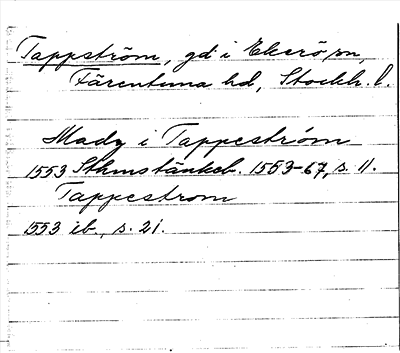 Tappström, gd i Ekerö sn,
Färentuna hd, Stockh. l.
Mady i Tappeström
1553 Sthmstänkeb. 1553-67, s. 11.
Tappestrom
1553 ib., s. 21.